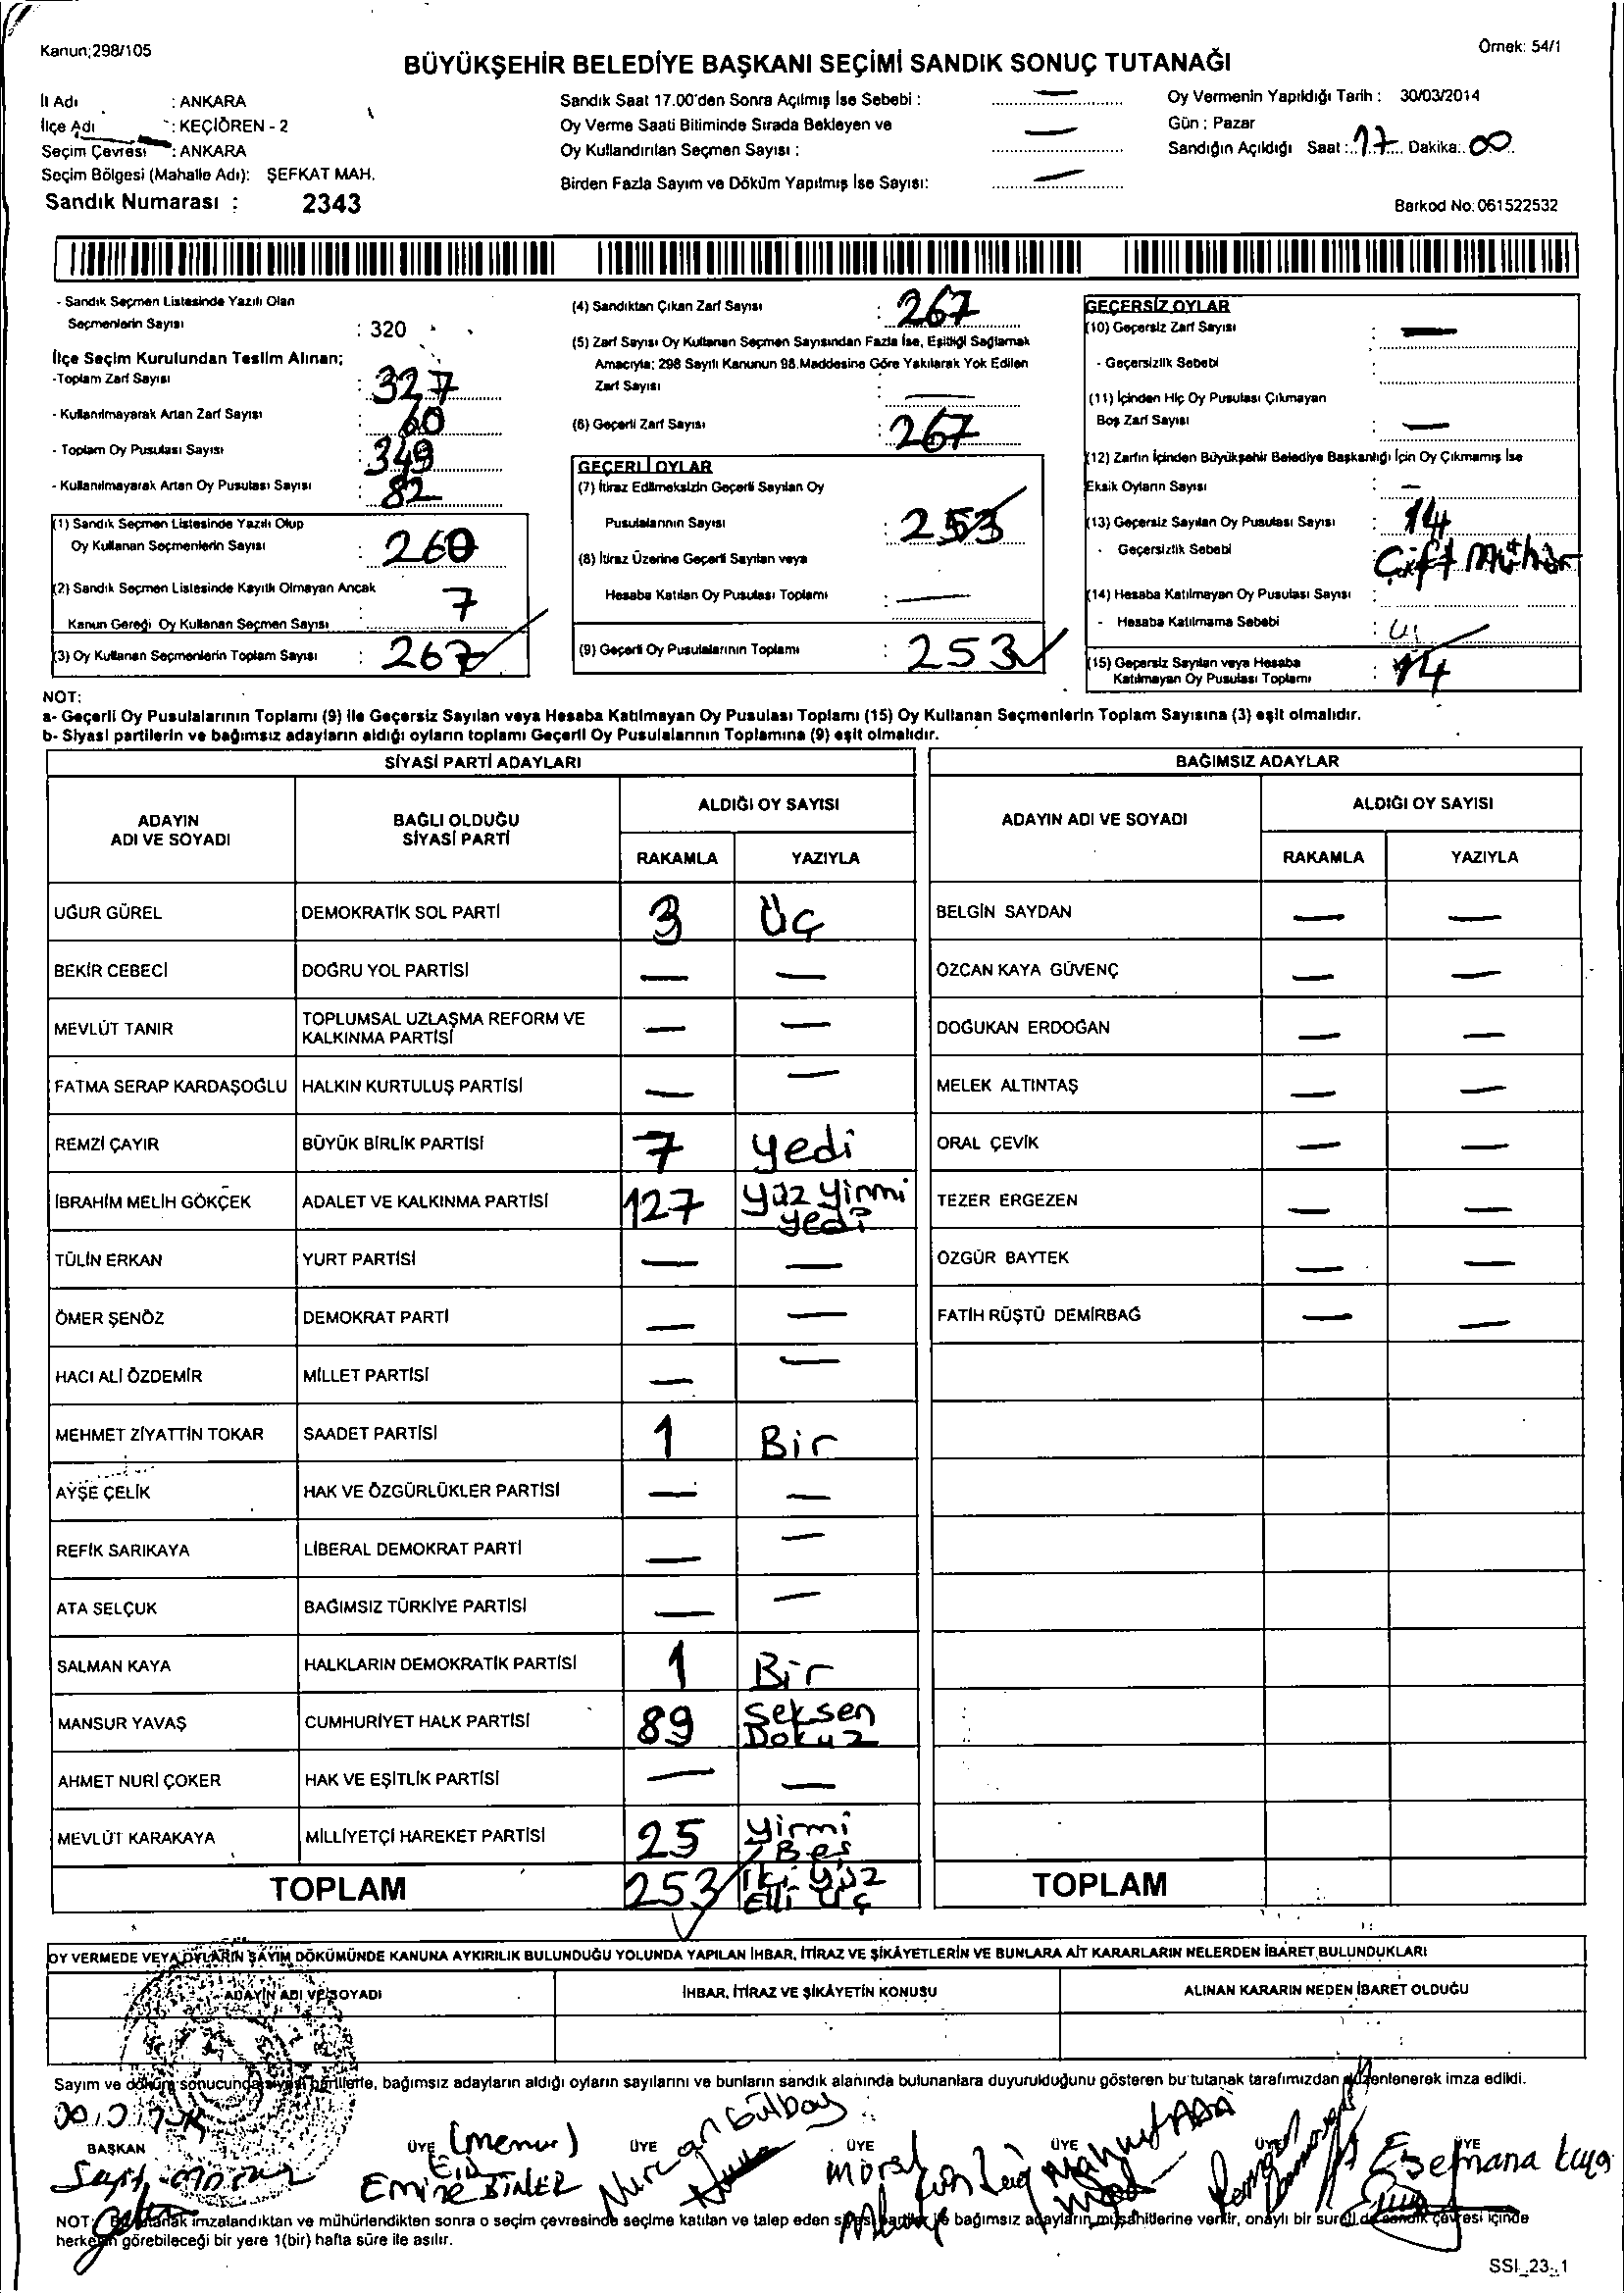 Kanun;298/105
Örnek: 54/1
BÜYÜKŞEHİR BELEDİYE BAŞKANI SEÇİMİ SANDIK SONUÇ TUTANAĞI
İl Adı : ANKARA
İlçe Adı : KEÇİÖREN - 2
Seçim Çevresi : ANKARA
Seçim Bölgesi (Mahalle Adı): ŞEFKAT MAH.
Sandık Numarası : 2343
Sandık Saat 17.00'den Sonra Açılmış İse Sebebi : —
Oy Verme Saati Bitiminde Sırada Bekleyen ve
Oy Kullandırılan Seçmen Sayısı : —
Birden Fazla Sayım ve Döküm Yapılmış İse Sayısı: —
Oy Vermenin Yapıldığı Tarih : 30/03/2014
Gün : Pazar
Sandığın Açıldığı Saat : 17 Dakika: 00
Barkod No: 061522532
- Sandık Seçmen Listesinde Yazılı Olan
Seçmenlerin Sayısı : 320
İlçe Seçim Kurulundan Teslim Alınan;
-Toplam Zarf Sayısı : 327
- Kullanılmayarak Artan Zarf Sayısı : 60
- Toplam Oy Pusulası Sayısı : 349
- Kullanılmayarak Artan Oy Pusulası Sayısı : 82
(1) Sandık Seçmen Listesinde Yazılı Olup
Oy Kullanan Seçmenlerin Sayısı : 260
(2) Sandık Seçmen Listesinde Kayıtlı Olmayan Ancak
Kanun Gereği Oy Kullanan Seçmen Sayısı : 7
(3) Oy Kullanan Seçmenlerin Toplam Sayısı : 267
(4) Sandıktan Çıkan Zarf Sayısı : 267
(5) Zarf Sayısı Oy Kullanan Seçmen Sayısından Fazla İse, Eşitliği Sağlamak
Amacıyla; 298 Sayılı Kanunun 98.Maddesine Göre Yakılarak Yok Edilen
Zarf Sayısı : —
(6) Geçerli Zarf Sayısı : 267
GEÇERLİ OYLAR
(7) İtiraz Edilmeksizin Geçerli Sayılan Oy
Pusulalarının Sayısı : 253
(8) İtiraz Üzerine Geçerli Sayılan veya
Hesaba Katılan Oy Pusulası Toplamı : —
(9) Geçerli Oy Pusulalarının Toplamı : 253
GEÇERSİZ OYLAR
(10) Geçersiz Zarf Sayısı : —
- Geçersizlik Sebebi :
(11) İçinden Hiç Oy Pusulası Çıkmayan
Boş Zarf Sayısı : —
(12) Zarfın İçinden Büyükşehir Belediye Başkanlığı İçin Oy Çıkmamış İse
Eksik Oyların Sayısı : —
(13) Geçersiz Sayılan Oy Pusulası Sayısı : 14
- Geçersizlik Sebebi : Çift Mühür
(14) Hesaba Katılmayan Oy Pusulası Sayısı :
- Hesaba Katılmama Sebebi :
(15) Geçersiz Sayılan veya Hesaba
Katılmayan Oy Pusulası Toplamı : 14
NOT:
a- Geçerli Oy Pusulalarının Toplamı (9) ile Geçersiz Sayılan veya Hesaba Katılmayan Oy Pusulası Toplamı (15) Oy Kullanan Seçmenlerin Toplam Sayısına (3) eşit olmalıdır.
b- Siyasi partilerin ve bağımsız adayların aldığı oyların toplamı Geçerli Oy Pusulalarının Toplamına (9) eşit olmalıdır.
SİYASİ PARTİ ADAYLARI
ADAYIN
ADI VE SOYADI
BAĞLI OLDUĞU
SİYASİ PARTİ
ALDIĞI OY SAYISI
RAKAMLA YAZIYLA
UĞUR GÜREL DEMOKRATİK SOL PARTİ 3 Üç
BEKİR CEBECİ DOĞRU YOL PARTİSİ — —
MEVLÜT TANIR TOPLUMSAL UZLAŞMA REFORM VE
KALKINMA PARTİSİ — —
FATMA SERAP KARDAŞOĞLU HALKIN KURTULUŞ PARTİSİ — —
REMZİ ÇAYIR BÜYÜK BİRLİK PARTİSİ 7 yedi
İBRAHİM MELİH GÖKÇEK ADALET VE KALKINMA PARTİSİ 127 yüz yirmi
yedi
TÜLİN ERKAN YURT PARTİSİ — —
ÖMER ŞENÖZ DEMOKRAT PARTİ — —
HACI ALİ ÖZDEMİR MİLLET PARTİSİ — —
MEHMET ZİYATTİN TOKAR SAADET PARTİSİ 1 Bir
AYŞE ÇELİK HAK VE ÖZGÜRLÜKLER PARTİSİ — —
REFİK SARIKAYA LİBERAL DEMOKRAT PARTİ — —
ATA SELÇUK BAĞIMSIZ TÜRKİYE PARTİSİ — —
SALMAN KAYA HALKLARIN DEMOKRATİK PARTİSİ 1 Bir
MANSUR YAVAŞ CUMHURİYET HALK PARTİSİ 89 Seksen
Dokuz
AHMET NURİ ÇOKER HAK VE EŞİTLİK PARTİSİ — —
MEVLÜT KARAKAYA MİLLİYETÇİ HAREKET PARTİSİ 25 yirmi
Beş
TOPLAM 253 İki yüz
Elli üç
BAĞIMSIZ ADAYLAR
ADAYIN ADI VE SOYADI
ALDIĞI OY SAYISI
RAKAMLA YAZIYLA
BELGİN SAYDAN — —
ÖZCAN KAYA GÜVENÇ — —
DOĞUKAN ERDOĞAN — —
MELEK ALTINTAŞ — —
ORAL ÇEVİK — —
TEZER ERGEZEN — —
ÖZGÜR BAYTEK — —
FATİH RÜŞTÜ DEMİRBAĞ — —
TOPLAM
OY VERMEDE VEYA OYLARIN SAYIM DÖKÜMÜNDE KANUNA AYKIRILIK BULUNDUĞU YOLUNDA YAPILAN İHBAR, İTİRAZ VE ŞİKÂYETLERİN VE BUNLARA AİT KARARLARIN NELERDEN İBARET BULUNDUKLARI
ADAYIN ADI VE SOYADI
İHBAR, İTİRAZ VE ŞİKÂYETİN KONUSU
ALINAN KARARIN NEDEN İBARET OLDUĞU
Sayım ve döküm sonucunda siyasi partilerle, bağımsız adayların aldığı oyların sayılarını ve bunların sandık alanında bulunanlara duyurulduğunu gösteren bu tutanak tarafımızdan düzenlenerek imza edildi.
BAŞKAN ÜYE ÜYE ÜYE ÜYE ÜYE ÜYE
(memur)
Emine
Nurcan Gülbay
Mahmut
NOT: Bu tutanak imzalandıktan ve mühürlendikten sonra o seçim çevresinde seçime katılan ve talep eden siyasi partiler ile bağımsız adayların müşahitlerine verilir, onaylı bir sureti de sandık çevresi içinde
herkesin görebileceği bir yere 1(bir) hafta süre ile asılır.
SSI_23_1